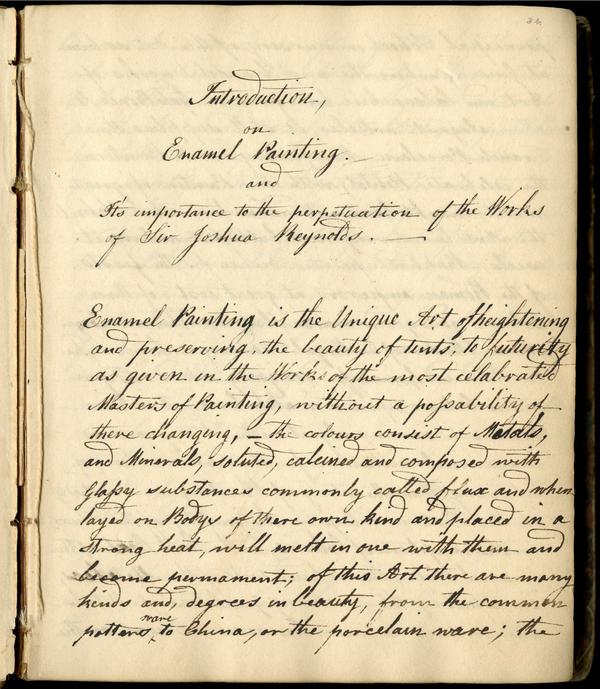 Introduction,
on
Enamel Painting. —
and
It's importance to the perpetuation of the Works
of Sir Joshua Reynolds. —
Enamel Painting is the Unique Art of heightening
and preserving, the beauty of tints, to futurity
as given in the Works of the most celabrated
Masters of Painting, without a poſsability of
there changing, — the colours consist of Metals,
and Minerals, soluted, calcined and composed with
Glaſsy substances commonly called flux and when
layed on Bodys of there own kind and placed in a
strong heat, will melt in one with them and
become permament; of this Art there are many
kinds and, degrees in beauty, from the common
potters ware to China, or the porcelain ware; the